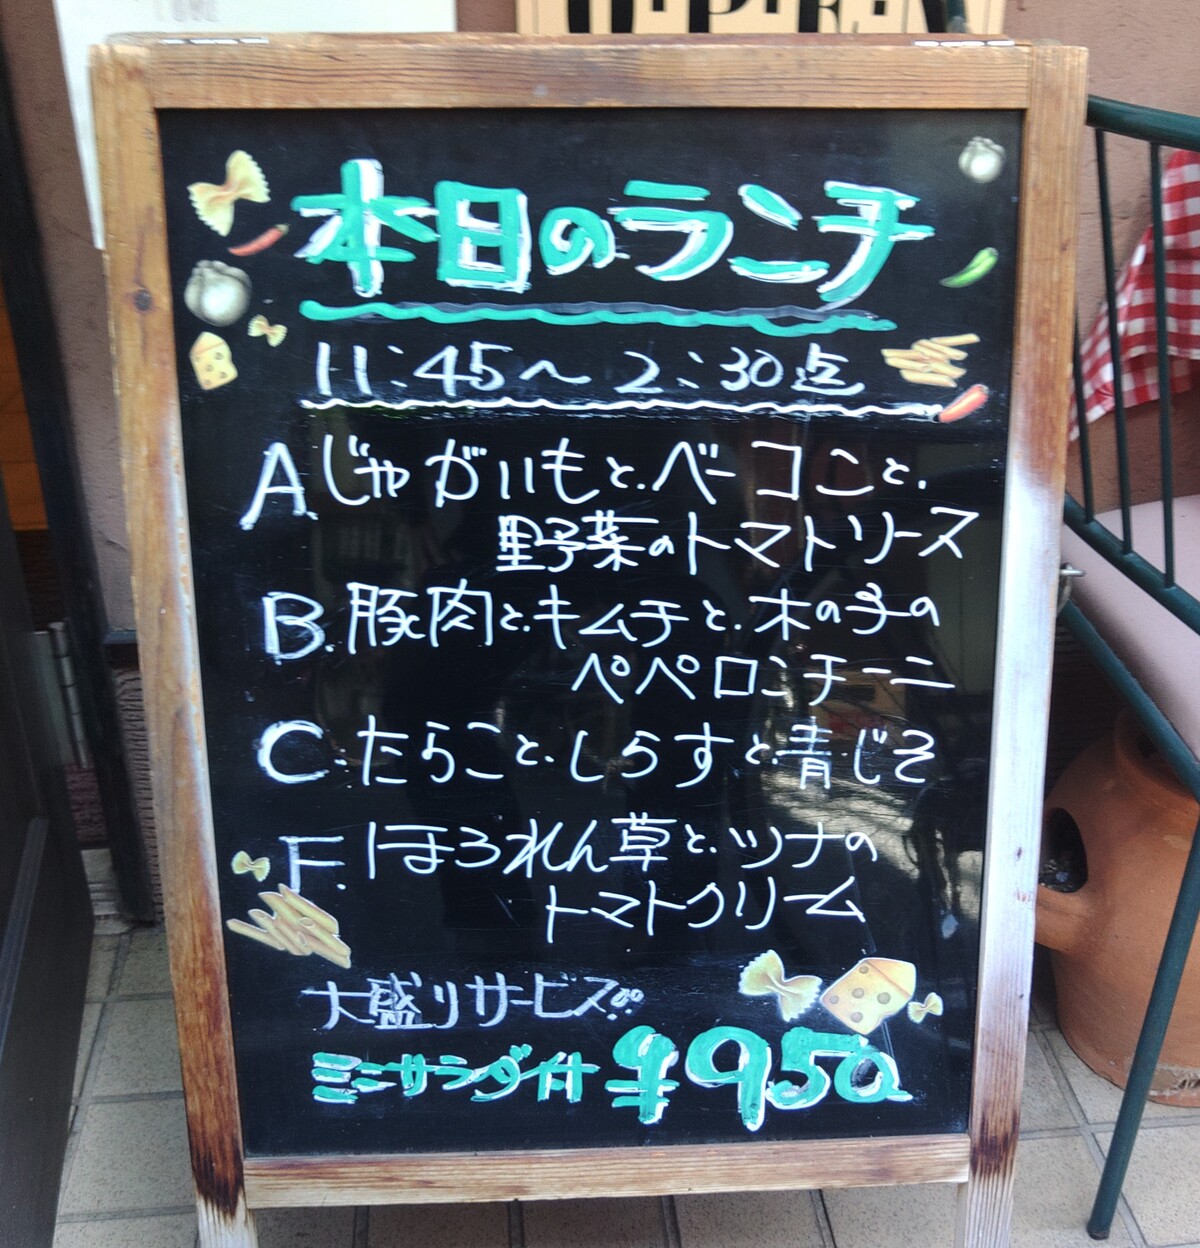 O·P·E·N
本日のランチ
11:45〜2:30迄
A.じゃがいもと.ベーコンと.
野菜のトマトソース
B.豚肉と.キムチと.木の子の
ペペロンチーニ
C.たらこと.しらすと.青じそ
F.ほうれん草と.ツナの
トマトクリーム
大盛りサービス
ミニサラダ付 ¥950